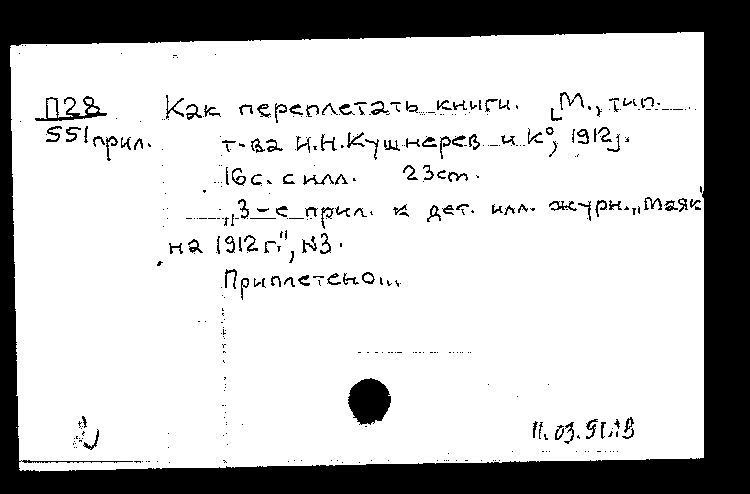 П28 Как переплетать книги. [М., тип.
551прил. т-ва И.Н.Кушнерев и К°, 1912].
16с. с илл. 23см.
„3-е прил. к дет. илл. журн. „Маяк"
на 1912 г.", №3.
Приплетено...
2 11.03.91.